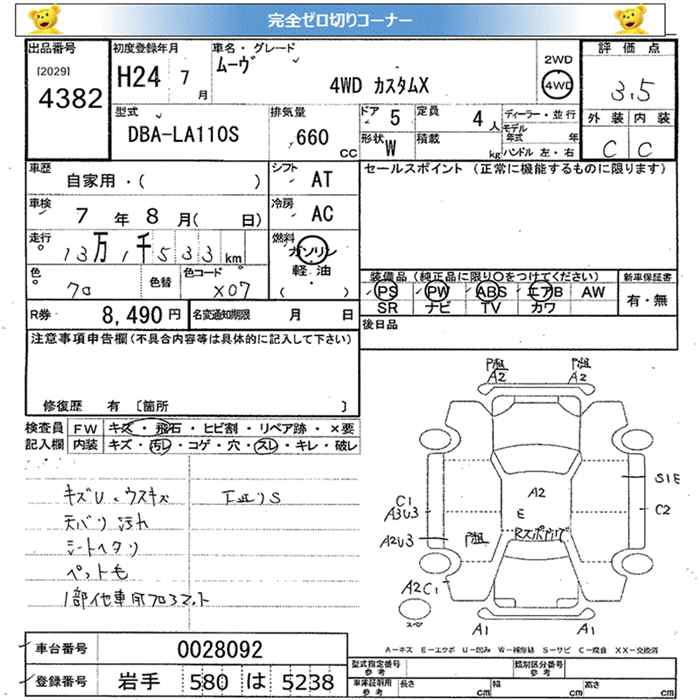 完全ゼロ切りコーナー
出品番号 [2029] 4382
初度登録年月 H24 7月
車名・グレード ムーヴ 4WD カスタムX
2WD 4WD
評価点 3.5
外装 内装
C C
型式 DBA-LA110S
排気量 660 cc
ドア 5
形状 W
定員 4人
積載 kg
ディーラー・並行
モデル年式 年
ハンドル 左・右
車歴 自家用・( )
シフト AT
車検 7年8月( 日)
冷房 AC
走行 13万1千533 km
燃料 ガソリン 軽・油 ( )
色 クロ 色替 色コード X07
R券 8,490円 名変通知期限 月 日
セールスポイント (正常に機能するものに限ります)
装備品 (純正品に限り○をつけてください) 新車保証書
PS PW ABS エアB AW 有・無
SR ナビ TV カワ
後日品
注意事項申告欄(不具合内容等は具体的に記入して下さい)
修復歴 有 〔箇所 〕
検査員記入欄 FW キズ・飛石・ヒビ割・リペア跡・×要
内装 キズ・汚レ・コゲ・穴・スレ・キレ・破レ
キズU、ウスキズ
天バリ汚れ
シートヘタリ
ペット毛
1部他車用フロアマット
エアロS
A2 A2
A2
E
S1E
C2
C1
A3U3
A2U3
A2C1
スペ
A1 A1
A-キズ E-エクボ U-凹み W-補修跡 S-サビ C-腐食 XX-交換済
車台番号 0028092
登録番号 岩手 580 は 5238
型式指定番号 参考 類別区分番号 参考
車庫証明用 参考 長さ cm 幅 cm 高さ cm